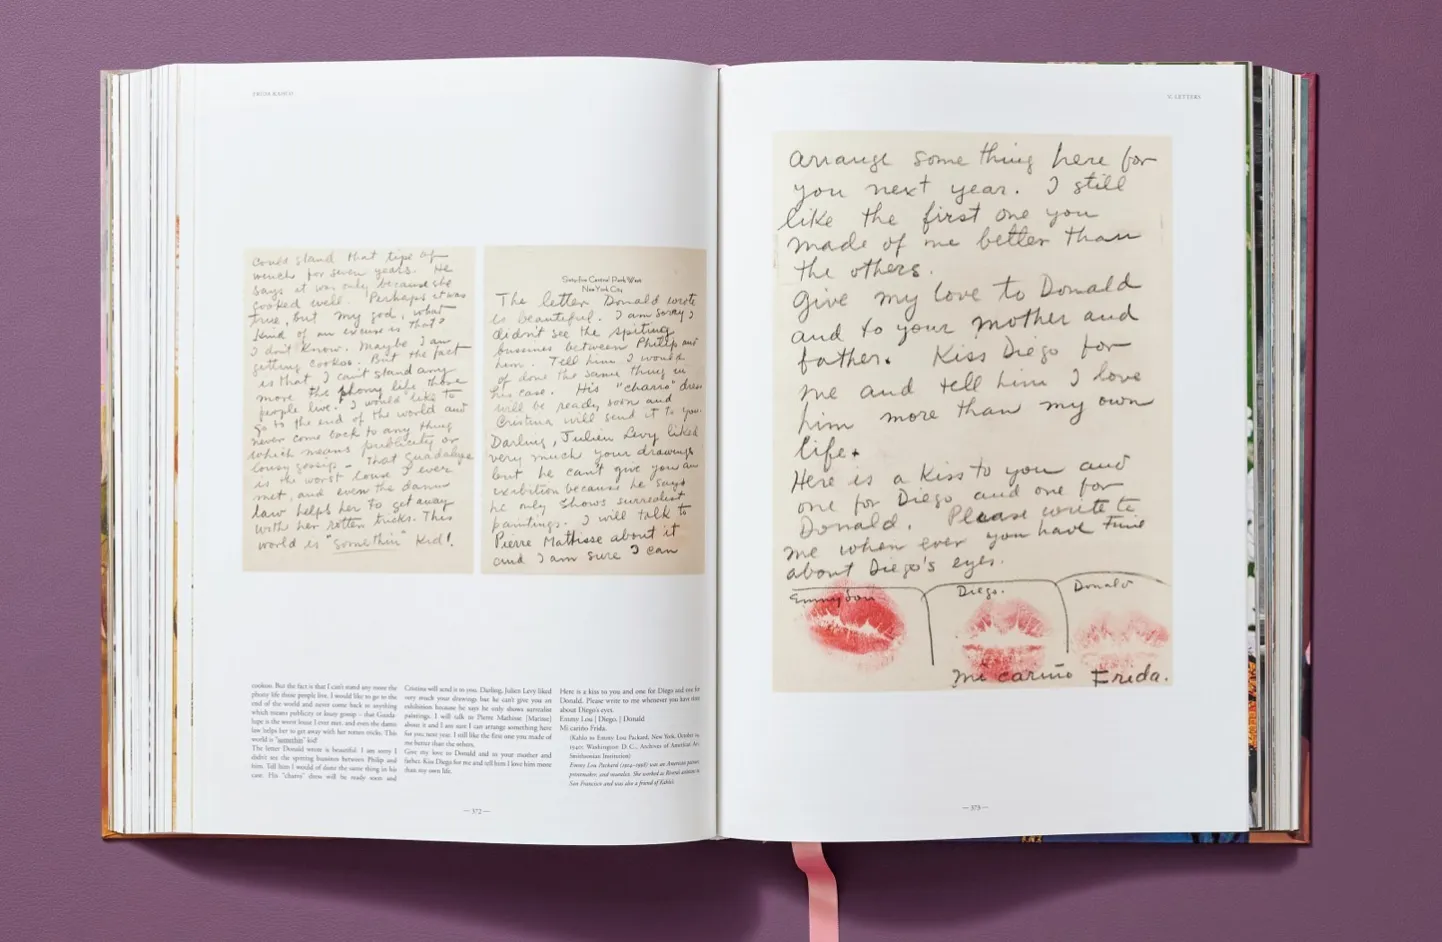 FRIDA KAHLO
could stand that tipe of
wench for seven years. He
says it was only because she
cooked well. Perhaps it was
true, but my god, what
kind of an excuse is that?
I don't know. Maybe I am
getting cookoo. But the fact
is that I can't stand any
more the phony life those
people live. I would like to
go to the end of the world and
never come back to any thing
which means publicity or
lousy gossip – That Guadalupe
is the worst louse I ever
met, and even the damn
law helps her to get away
with her rotten tricks. This
world is "somethin" kid!.
Sixty-five Central Park West
New York City
The letter Donald wrote
is beautiful. I am sorry I
didn't see the spiting
bussines between Philip and
him. Tell him I would
of done the same thing in
his case. His "charro" dress
will be ready soon and
Cristina will send it to you.
Darling, Julien Levy liked
very much your drawings
but he can't give you an
exibition because he says
he only shows surrealist
paintings. I will talk to
Pierre Mathisse about it
and I am sure I can
cookoo. But the fact is that I can't stand any more the
phony life those people live. I would like to go to the
end of the world and never come back to anything
which means publicity or lousy gossip – that Guada-
lupe is the worst louse I ever met, and even the damn
law helps her to get away with her rotten tricks. This
world is "somethin" kid!
The letter Donald wrote is beautiful. I am sorry I
didn't see the spitting bussines between Philip and
him. Tell him I would of done the same thing in his
case. His "charro" dress will be ready soon and
Cristina will send it to you. Darling, Julien Levy liked
very much your drawings but he can't give you an
exhibition because he says he only shows surrealist
paintings. I will talk to Pierre Mathisse [Matisse]
about it and I am sure I can arrange something here
for you next year. I still like the first one you made of
me better than the others.
Give my love to Donald and to your mother and
father. Kiss Diego for me and tell him I love him more
than my own life.
Here is a kiss to you and one for Diego and one for
Donald. Please write to me whenever you have time
about Diego's eyes.
Emmy Lou | Diego. | Donald
Mi cariño Frida.
(Kahlo to Emmy Lou Packard, New York, October
1940; Washington D. C., Archives of American Art,
Smithsonian Institution)
Emmy Lou Packard (1914–1998) was an American painter,
printmaker, and muralist. She worked as Rivera's assistant in
San Francisco and was also a friend of Kahlo's.
— 372 —
V. LETTERS
arrange some thing here for
you next year. I still
like the first one you
made of me better than
the others.
Give my love to Donald
and to your mother and
father. Kiss Diego for
me and tell him I love
him more than my own
life.
Here is a kiss to you and
one for Diego and one for
Donald. Please write to
me when ever you have time
about Diego's eyes.
Emmy Lou Diego. Donald
Mi cariño Frida.
— 373 —